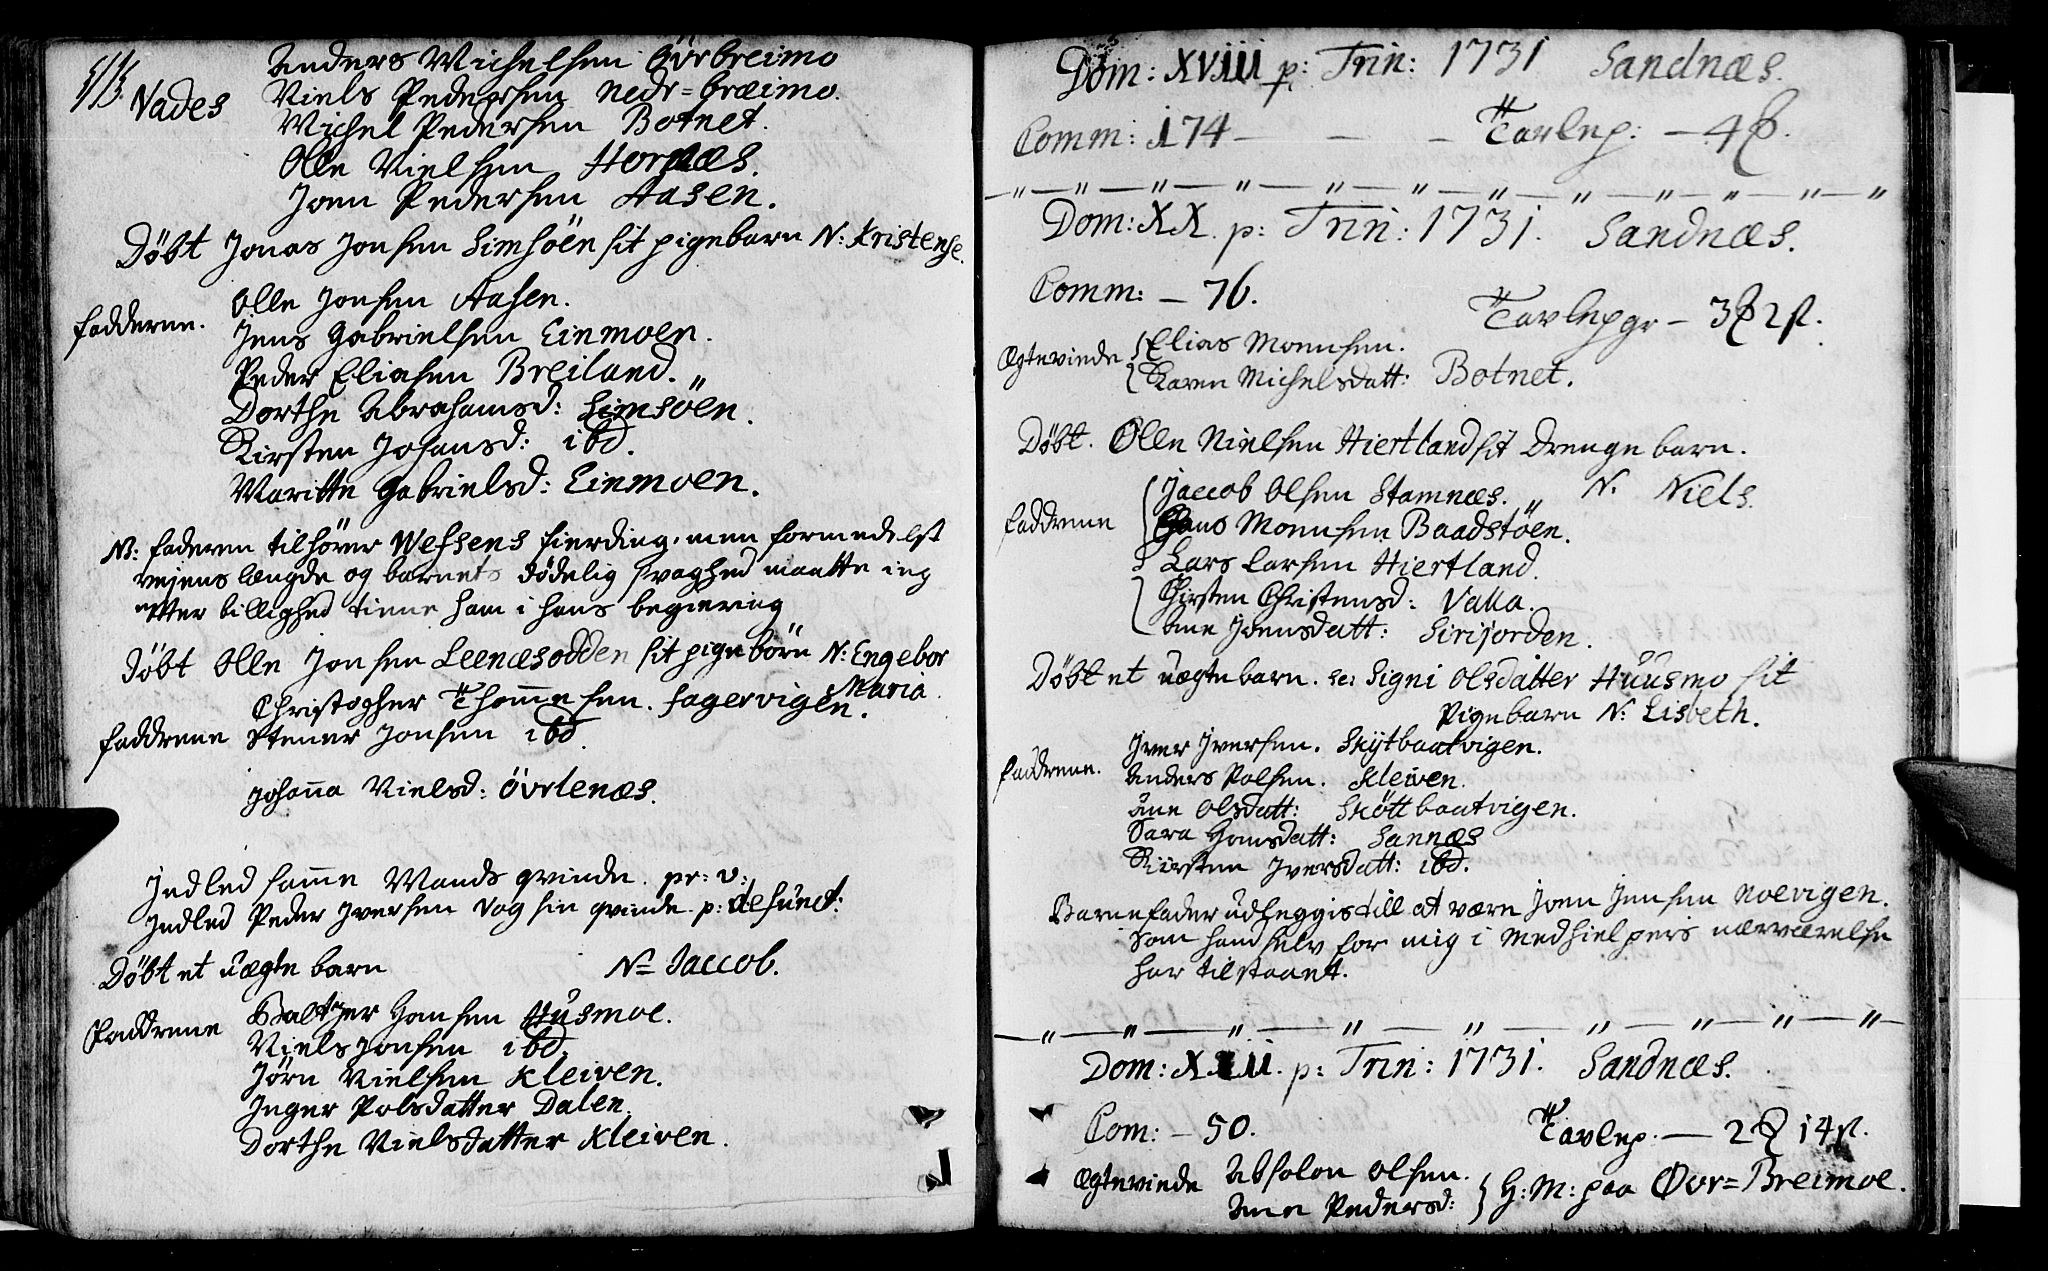 Anders Michelsen Övrbreimo
Vades Niels Pedersen nedr=bræimo.
Michel Pedersen Botnet.
Olle Nielsen Hornæs.
Joen Pedersen Aasen.
Döbt Jonas Jonsen Simsöen sit pigebarn N: Kristense.
Olle Jonsen Aasen.
fadderne. Jens Gabrielsen Einmoen.
Peder Eliasen Breiland.
Dorthe Abrahamsd: Simsöen.
Kirsten Johansd: ibd.
Maritte Gabrielsd: Einmoen.
NB: faderen tilhörer Wefsens fierding, men formedelst
veyens længde og barnets dödelig svaghed maatte ieg
efter billighed tiene ham i hans begiering
Döbt Olle Jonsen Leenæsodden sit pige börn N: Engebor
Maria.
Christopher Thommesen. fagervigen.
faddrene Stener Jonsen ibd.
Johanna Nielsd: Övrlenæs.
Indled samme Mands qvinde. pr: v:
Indled Peder Iversen Vog sin qvinde p: defunct:
Döbt et uægte barn N= Jaccob.
Baltzer Hansen Husmoe.
Faddrene Niels Jonsen ibd.
Jörn Nielsen Kleiven.
Inger Polsdatter Dalen.
Dorthe Nielsdatter Kleiven.
Dom: XVIII p: Trin: 1731 Sandnæs.
Comm: 174 — — — Tavlep: — 4
Dom: XX. p: Trin: 1731. Sandnæs.
Comm: — 76.
Tavlepgr — 3 2 s.
Ægtevinde Elias Monsen.
Karen Michelsdatt: Botnet.
Döbt. Olle Nielsen Hiertland sit Drenge barn.
Jaccob Olsen Stamnæs. N. Niels.
faddrene Hans Monsen Baadstöen.
Lars Larsen Hiertland.
Chirsten Christensd: Valla.
Ane Joensdatt: Sirijorden.
Döbt et uægte barn. sc: Signi Olsdatter Huusmo sit
Pigebarn N: Lisbeth.
Iver Iversen. Skjtbaatvigen.
faddrene. Anders Polsen. Kleiven.
Ane Olsdatt: Sköttbaatvigen.
Sara Hansdatt: Sannæs
Kirsten Iversdatt: ibd.
Barnefader udleggis till at være Joen Jensen Noevigen.
som hand selv for mig i Medhielpers nærværelse
har tilstaaet.
Dom: XXII. p: Trin: 1731. Sandnæs.
Com: — 50. Tavlep: — 2 14 s.
Ægtevinde Absolon Olsen.
Ane Pedersd: H: M: paa Övr=Breimoe.